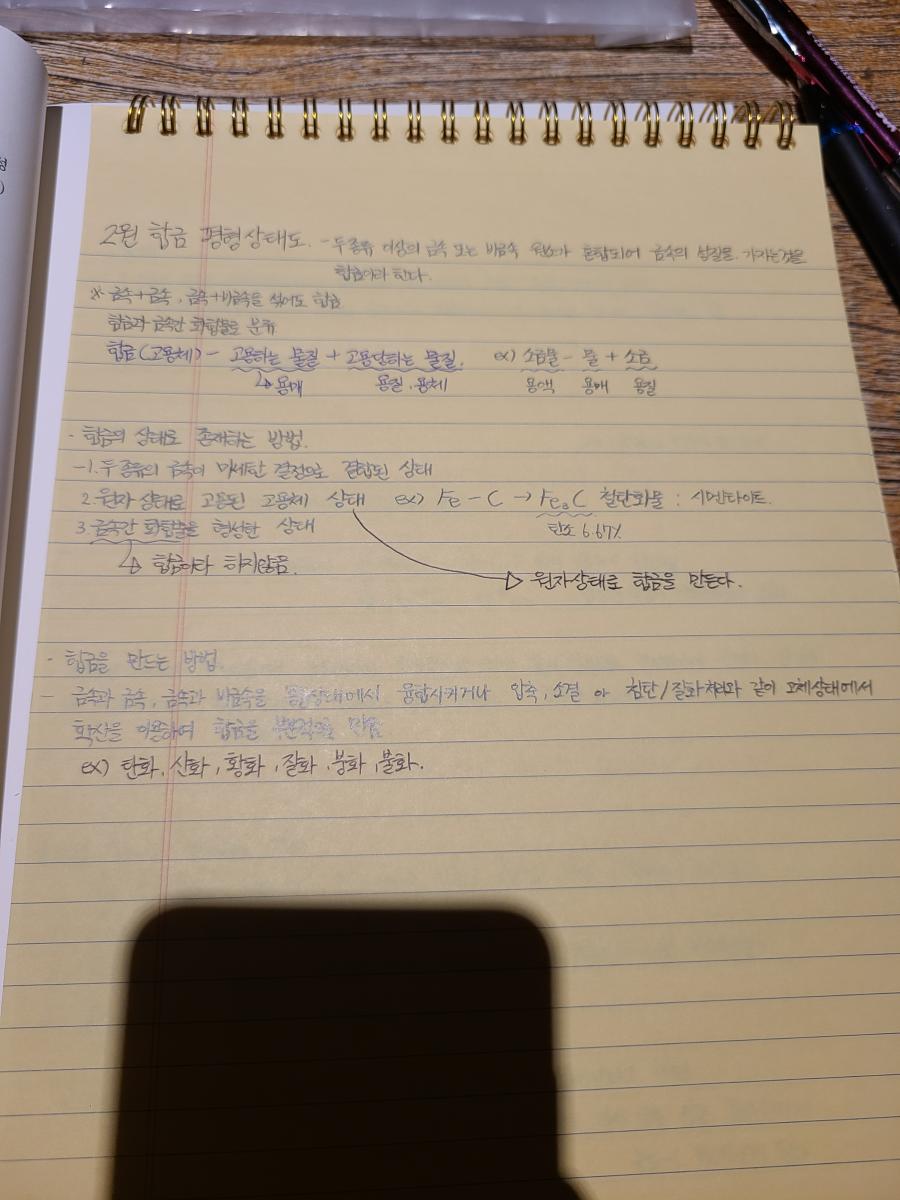 2원 합금 평형상태도. - 두 종류 이상의 금속 또는 비금속 원소가 혼합되어 금속의 성질을 가지는것을
합금이라 한다.
※ 금속+금속, 금속+비금속을 섞어도 합금
합금과 금속간 화합물로 분류
합금(고용체) - 고용하는 물질 + 고용당하는 물질. ex) 소금물 - 물 + 소금
용매 용질. 용체 용액 용매 용질
· 합금의 상태로 존재하는 방법.
-1. 두 종류의 금속이 미세한 결정으로 결합된 상태
2. 원자 상태로 고용된 고용체 상태 ex) Fe - C → Fe₃C 철탄화물 : 시멘타이트.
3. 금속간 화합물을 형성한 상태 탄소 6.67%
합금이다 하지않음.
원자상태로 합금을 만든다.
· 합금을 만드는 방법.
- 금속과 금속, 금속과 비금속을 용융상태에서 융합시키거나 압축, 소결 아 침탄/질화처리와 같이 고체상태에서
확산을 이용하여 합금을 부분적으로 만듦
ex) 탄화, 산화, 황화, 질화, 붕화, 불화.